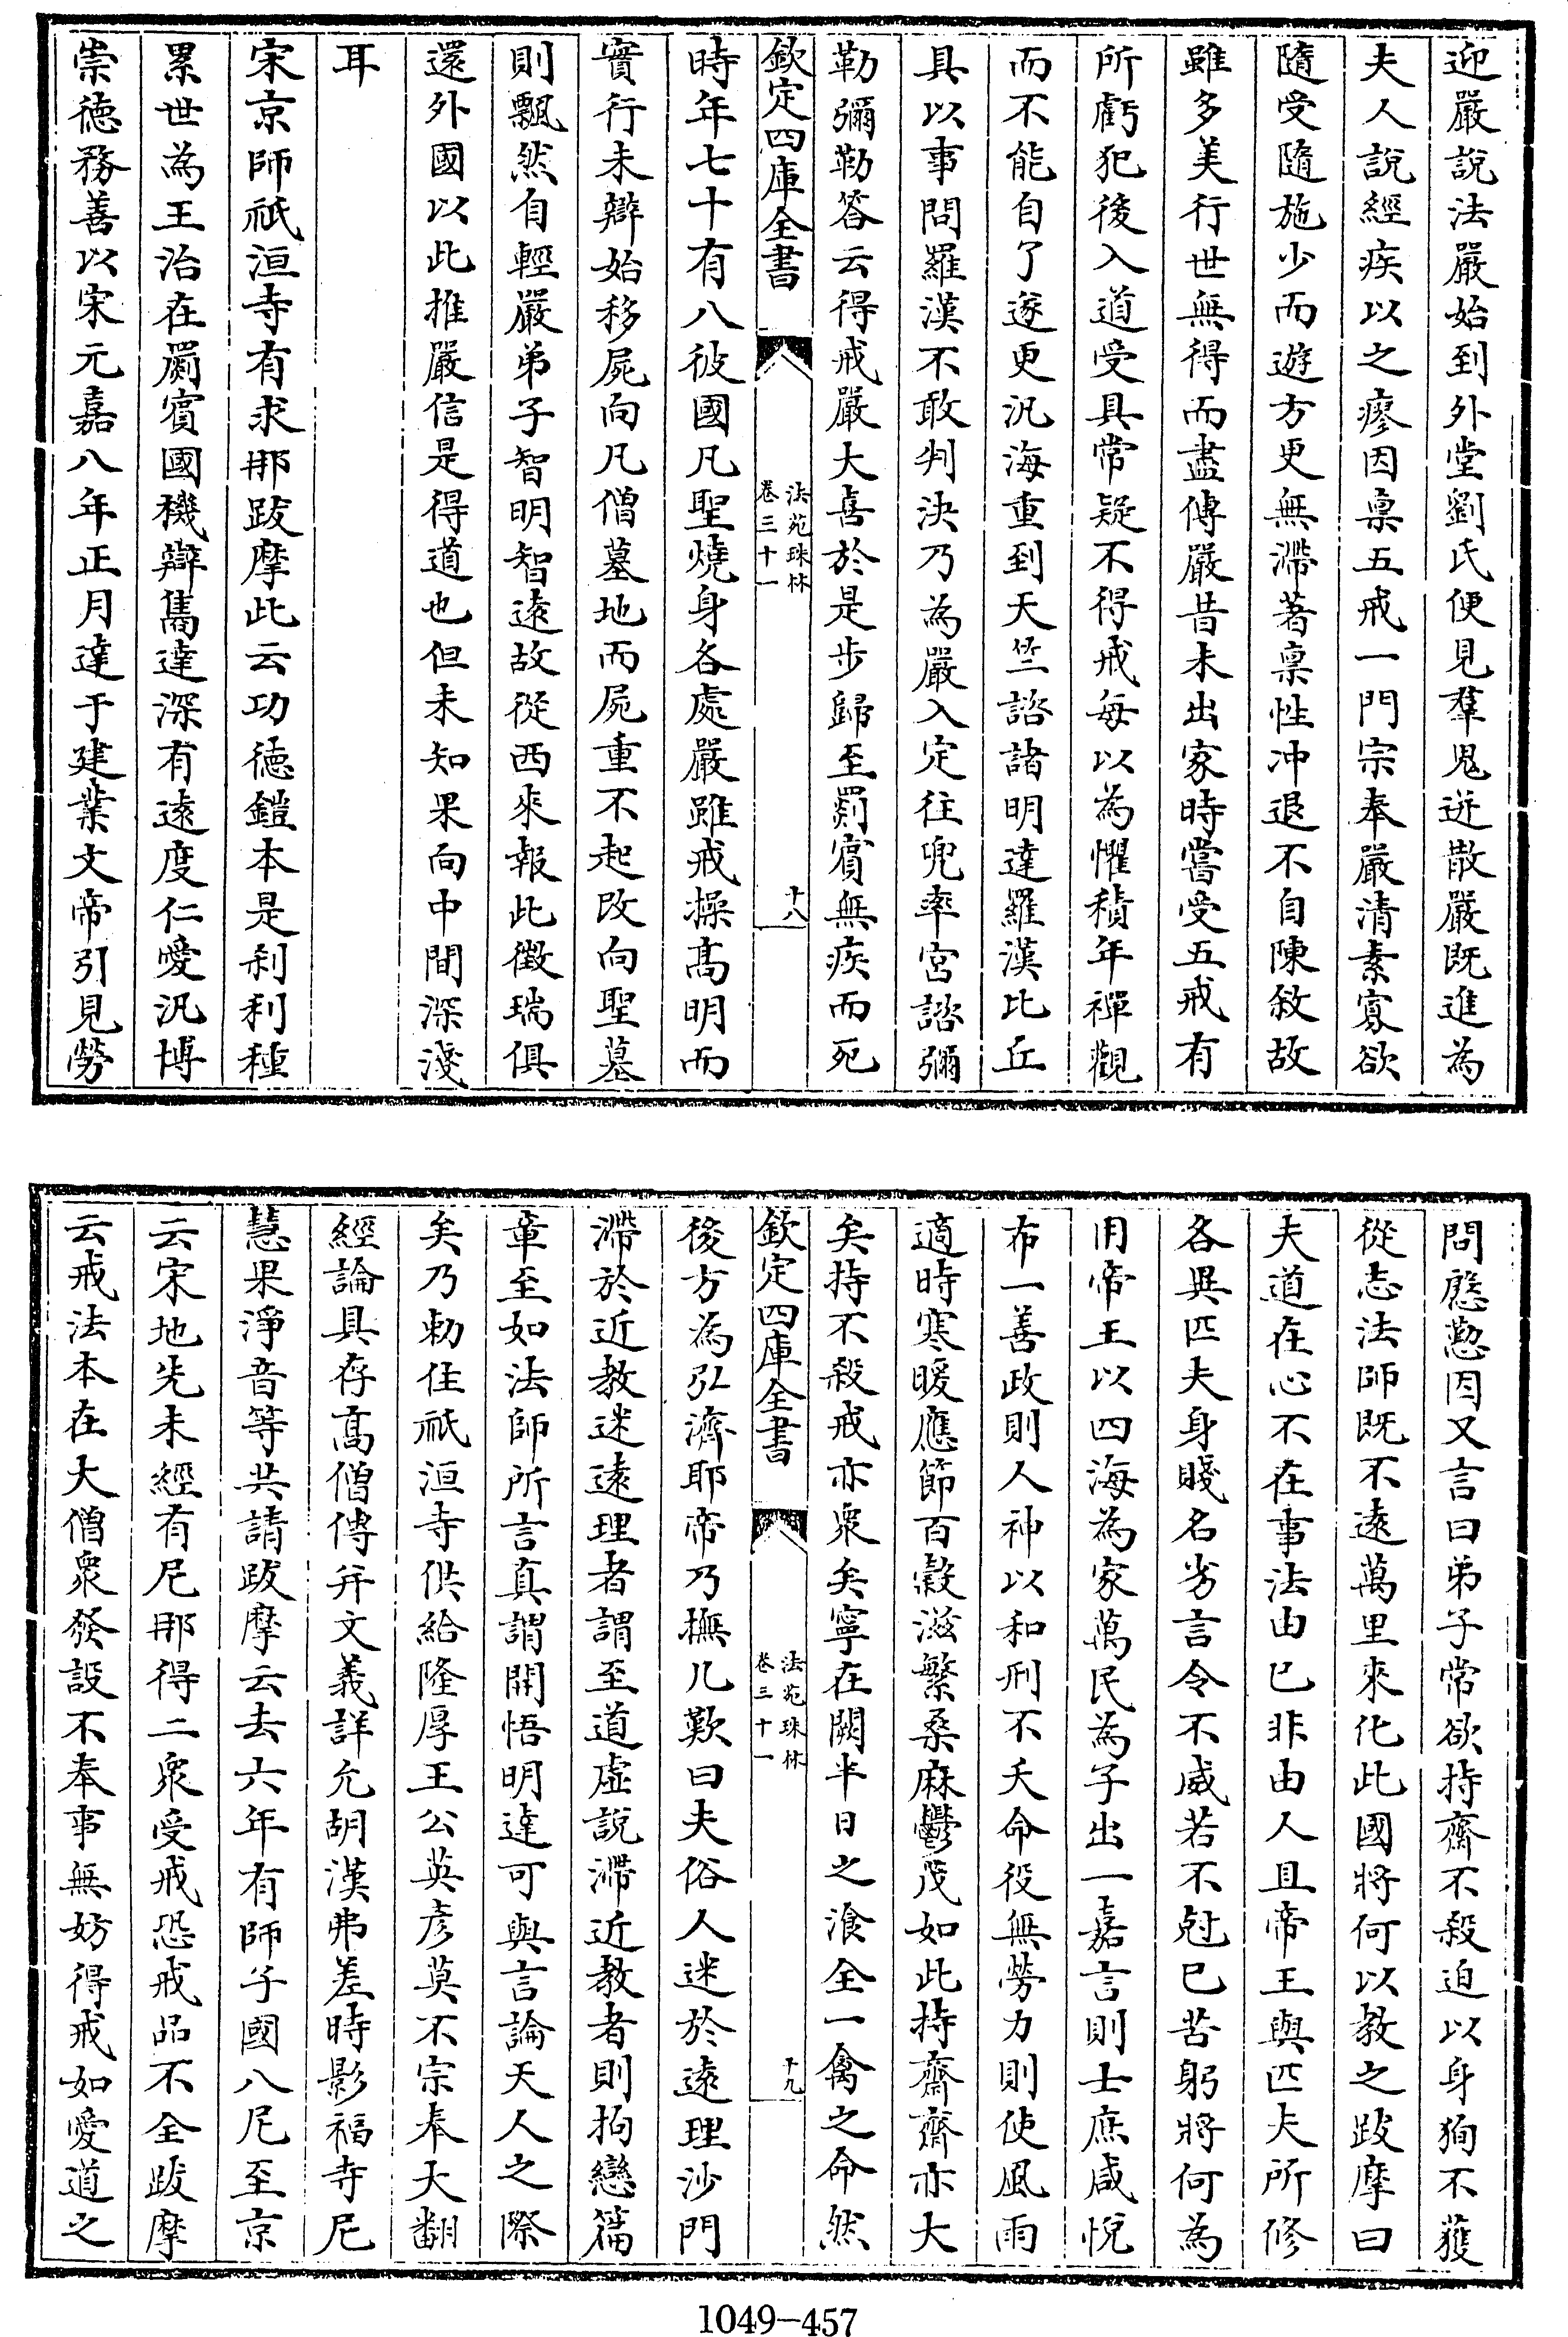 迎嚴說法嚴始到外堂劉氏便見羣鬼迸散嚴既進為
夫人說經疾以之瘳因稟五戒一門宗奉嚴清素寡欲
隨受隨施少而遊方更無滯著稟性冲退不自陳敘故
雖多美行世無得而盡傳嚴昔未出家時嘗受五戒有
所虧犯後入道受具常疑不得戒每以為懼積年禪觀
而不能自了遂更汎海重到天竺諮諸明達羅漢比丘
具以事問羅漢不敢判決乃為嚴入定往兜率宮諮彌
勒彌勒答云得戒嚴大喜於是步歸至罽賓無疾而死
欽定四庫全書
法苑珠林
卷三十一
十八
時年七十有八彼國凡聖燒身各處嚴雖戒操髙明而
實行未辯始移屍向凡僧墓地而屍重不起改向聖墓
則飄然自輕嚴弟子智明智遠故從西來報此徵瑞俱
還外國以此推嚴信是得道也但未知果向中間深淺
耳
宋京師祇洹寺有求那跋摩此云功徳鎧本是刹利種
累世為王治在罽賓國機辯雋達深有遠度仁愛汎博
崇徳務善以宋元嘉八年正月達于建業文帝引見勞
問慇懃因又言曰弟子常欲持齋不殺迫以身狥不獲
從志法師既不遠萬里來化此國將何以教之跋摩曰
夫道在心不在事法由已非由人且帝王與匹夫所修
各異匹夫身賤名劣言令不威若不尅已苦躬將何為
用帝王以四海為家萬民為子出一嘉言則士庶咸悅
布一善政則人神以和刑不夭命役無勞力則使風雨
適時寒暖應節百穀滋繁桑麻鬱茂如此持齋齋亦大
矣持不殺戒亦衆矣寧在闕半日之飡全一禽之命然
欽定四庫全書
法苑珠林
卷三十一
十九
後方為弘濟耶帝乃撫几歎曰夫俗人迷於遠理沙門
滯於近教迷遠理者謂至道虛說滯近教者則拘戀篇
章至如法師所言真謂開悟明達可與言論天人之際
矣乃勅住祇洹寺供給隆厚王公英彥莫不宗奉大翻
經論具存髙僧傳并文義詳允胡漢弗差時影福寺尼
慧果淨音等共請跋摩云去六年有師子國八尼至京
云宋地先未經有尼那得二衆受戒恐戒品不全跋摩
云戒法本在大僧衆發設不奉事無妨得戒如愛道之
1049-457